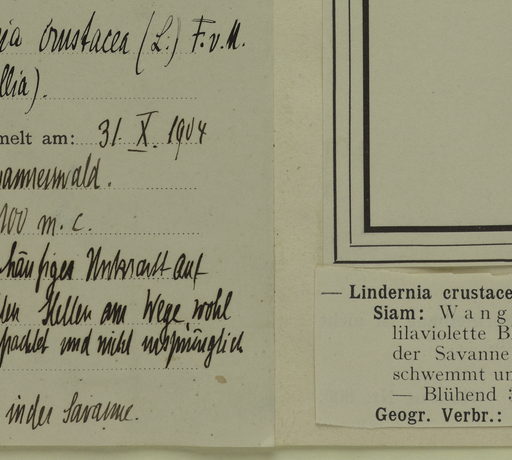 ia crustacea (L.) F. v. M.
llia).
melt am: 31. X. 1904
annenwald.
100 m. c.
häufiges Unkraut auf
ten Stellen am Wege wohl
und nicht ursprünglich
in der Savanne.
— Lindernia crustace
Siam: Wang
lilaviolette B
der Savanne
schwemmt un
— Blühend
Geogr. Verbr.: